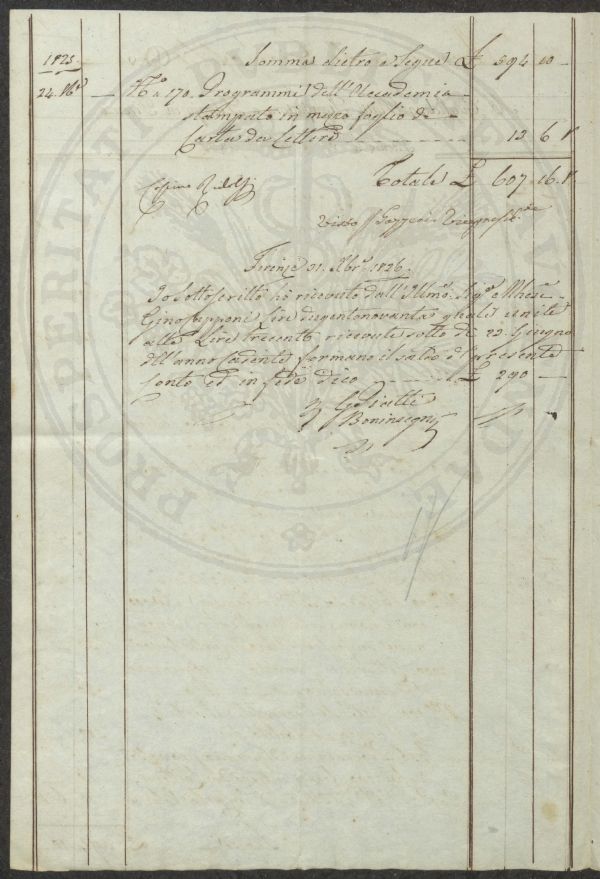 1825
Somma dietro e Segue £ 594 10 —
24. N. 170. Programmi dell'Accademia
stampato in mezzo foglio di
Carta da Lettere 13 6
Totale £ 607. 16.
Cosimo Ridolfi
Visto
Firenze 31. Xbre. 1826.
Io sottoscritto hò ricevuto dall'Illmo. Sigre. Mhese.
Gino Capponi lire dugentonovanta quali unite
alle Lire trecento ricevute sotto dì 22. Giugno
dell'anno cadente formano il saldo del presente
Conto ed in fede dico £ 290 —
Boninsegni
PROSPERITATI PUBLICAE